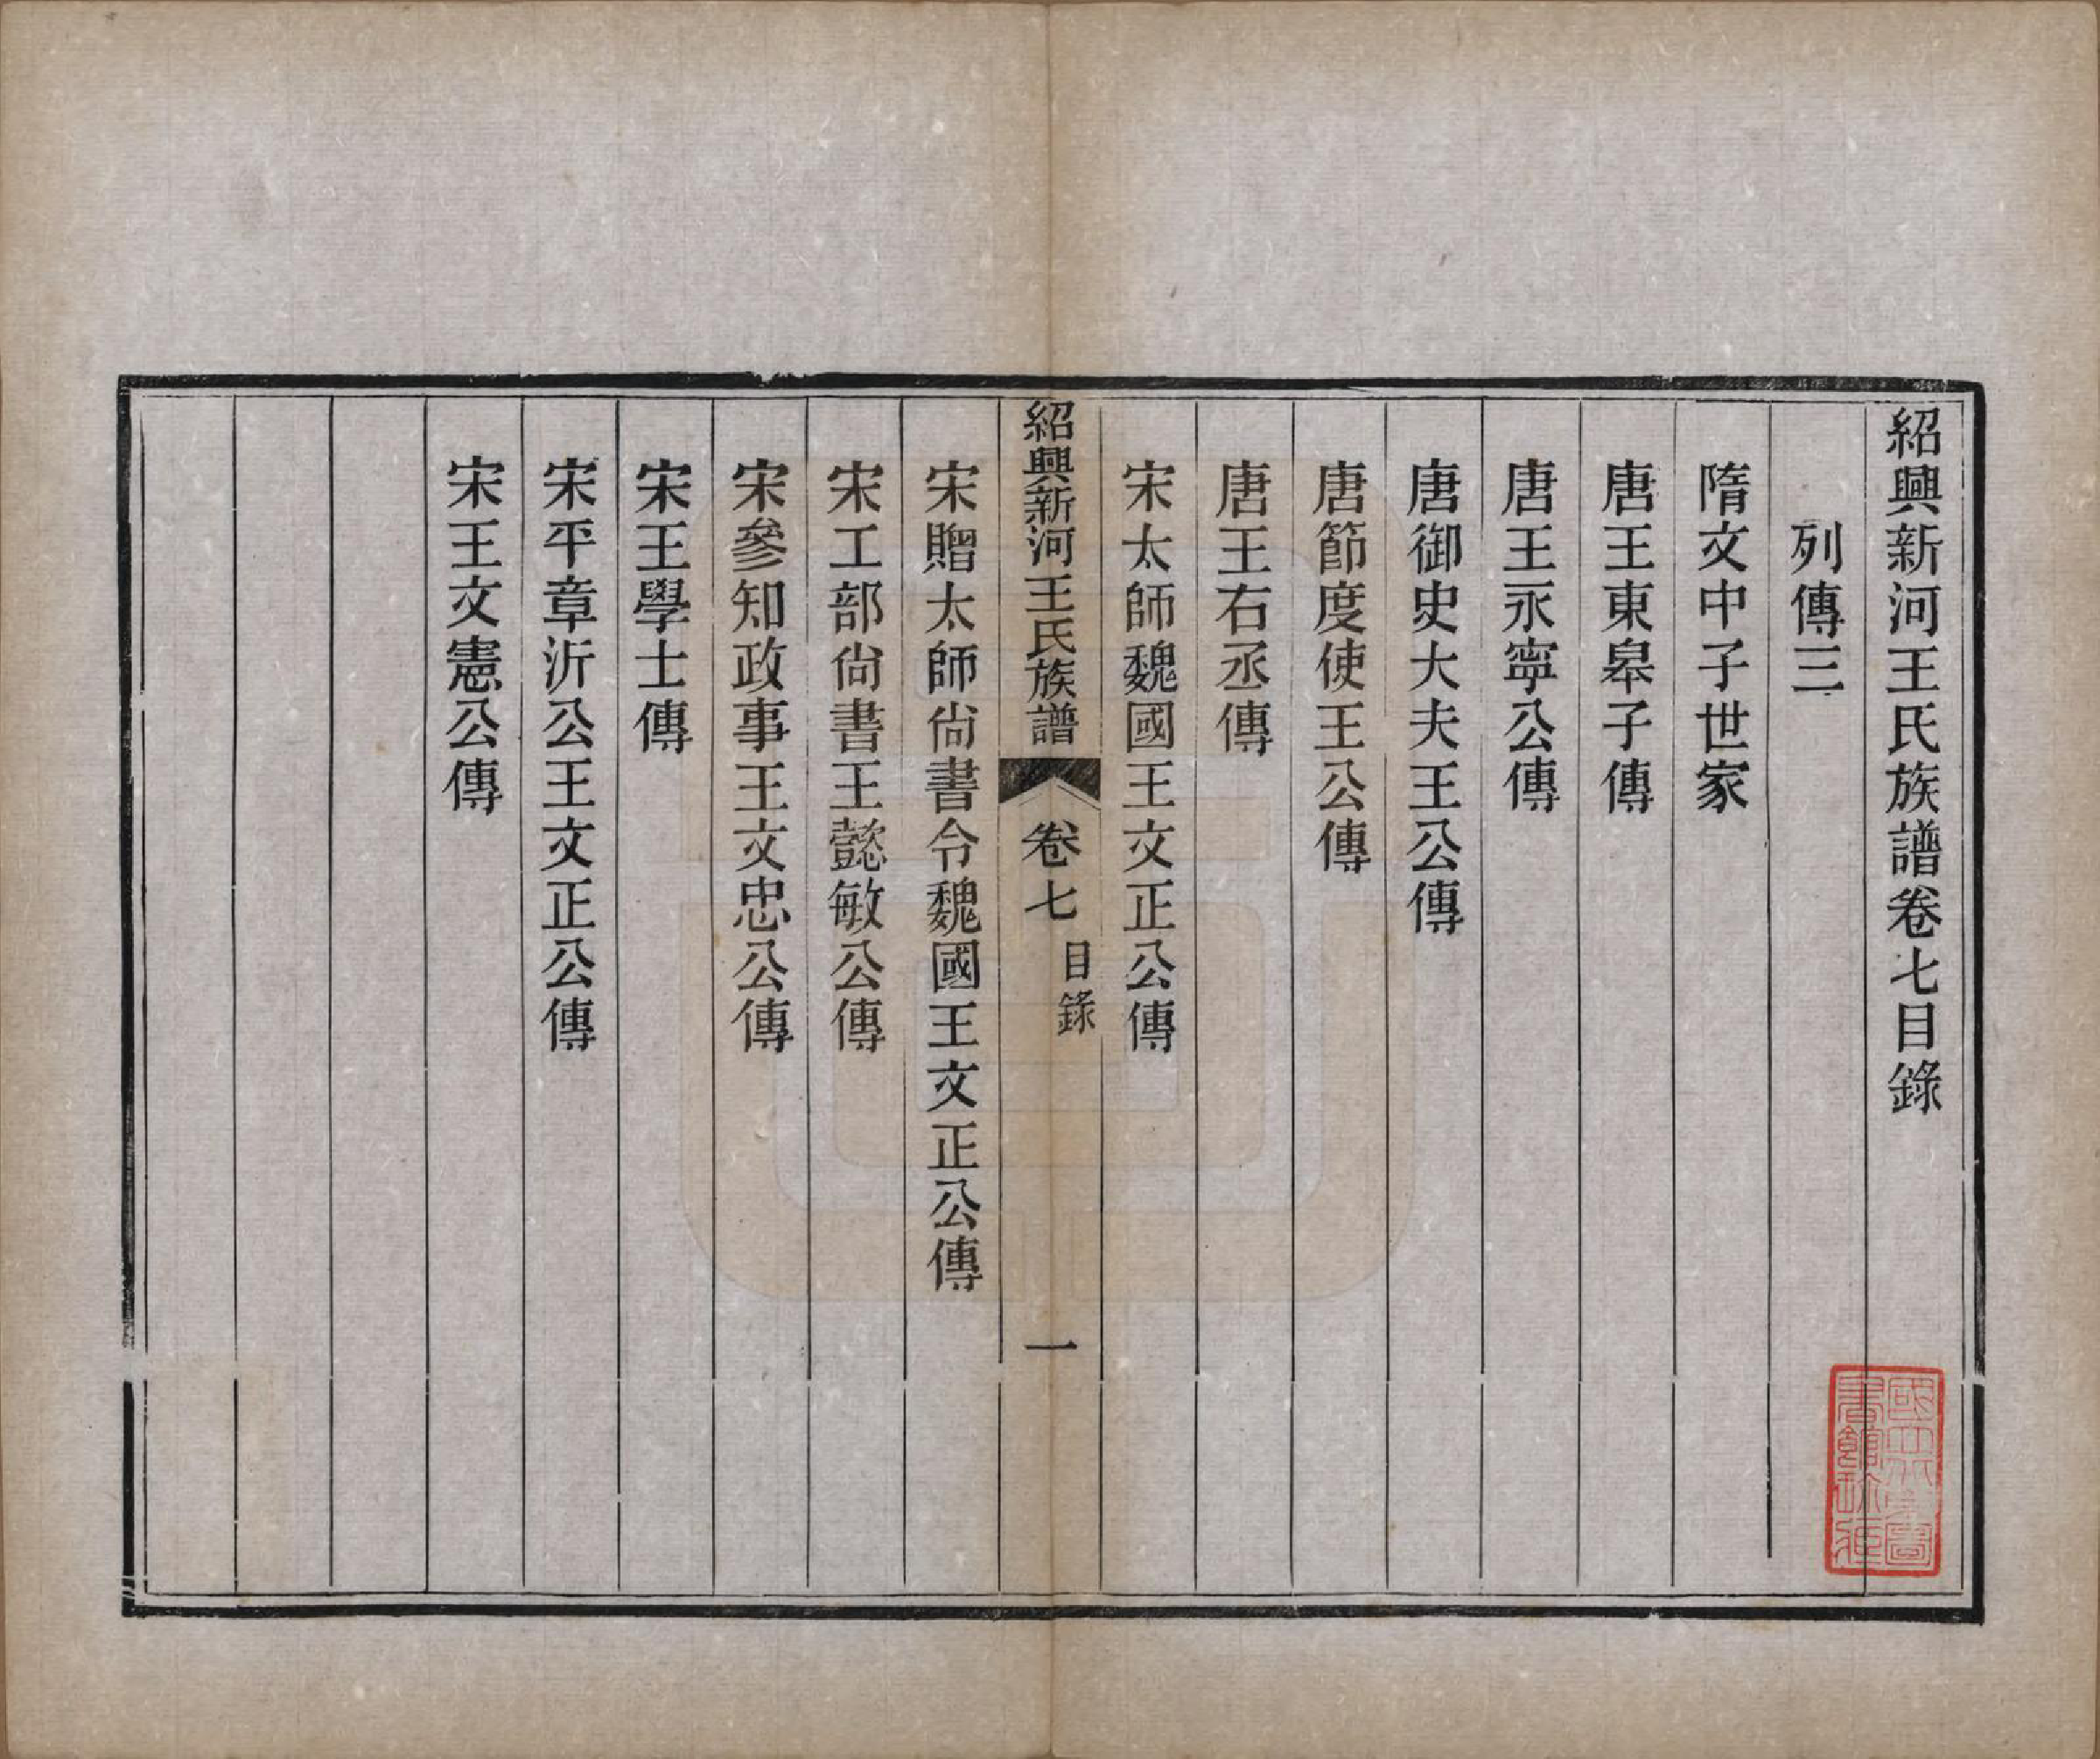 紹興新河王氏族譜卷七目錄
列傳三
隋文中子世家
唐王東皋子傳
唐王永寧公傳
唐御史大夫王公傳
唐節度使王公傳
唐王右丞傳
宋太師魏國王文正公傳
紹興新河王氏族譜
卷七
目錄
一
宋贈太師尙書令魏國王文正公傳
宋工部尙書王懿敏公傳
宋參知政事王文忠公傳
宋王學士傳
宋平章沂公王文正公傳
宋王文憲公傳
國立北平圖
書館珍藏